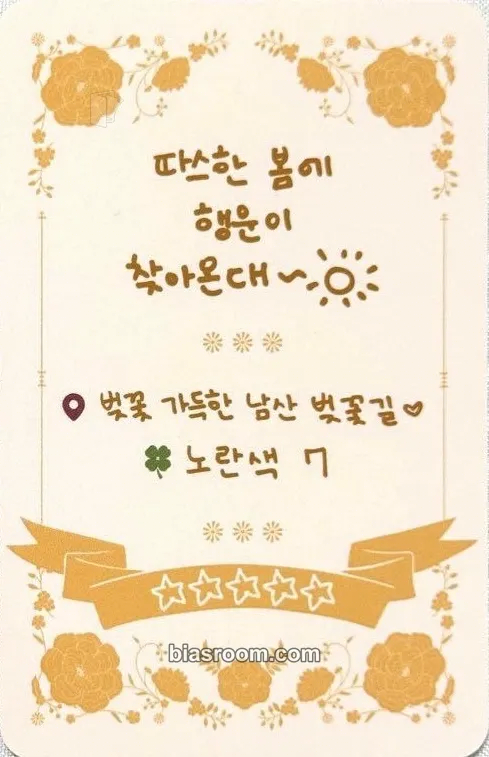 따스한 봄에
행운이
찾아온대~
벚꽃 가득한 남산 벚꽃길♡
노란색 7
biasroom.com